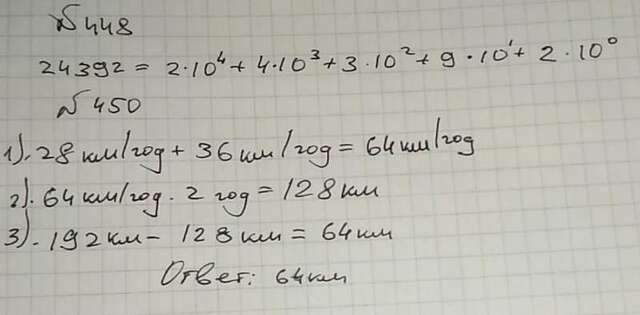 №448
24392 = 2·10⁴ + 4·10³ + 3·10² + 9·10¹ + 2·10⁰
№450
1). 28 км/год + 36 км/год = 64 км/год
2). 64 км/год · 2 год = 128 км
3). 192 км - 128 км = 64 км
Ответ: 64 км